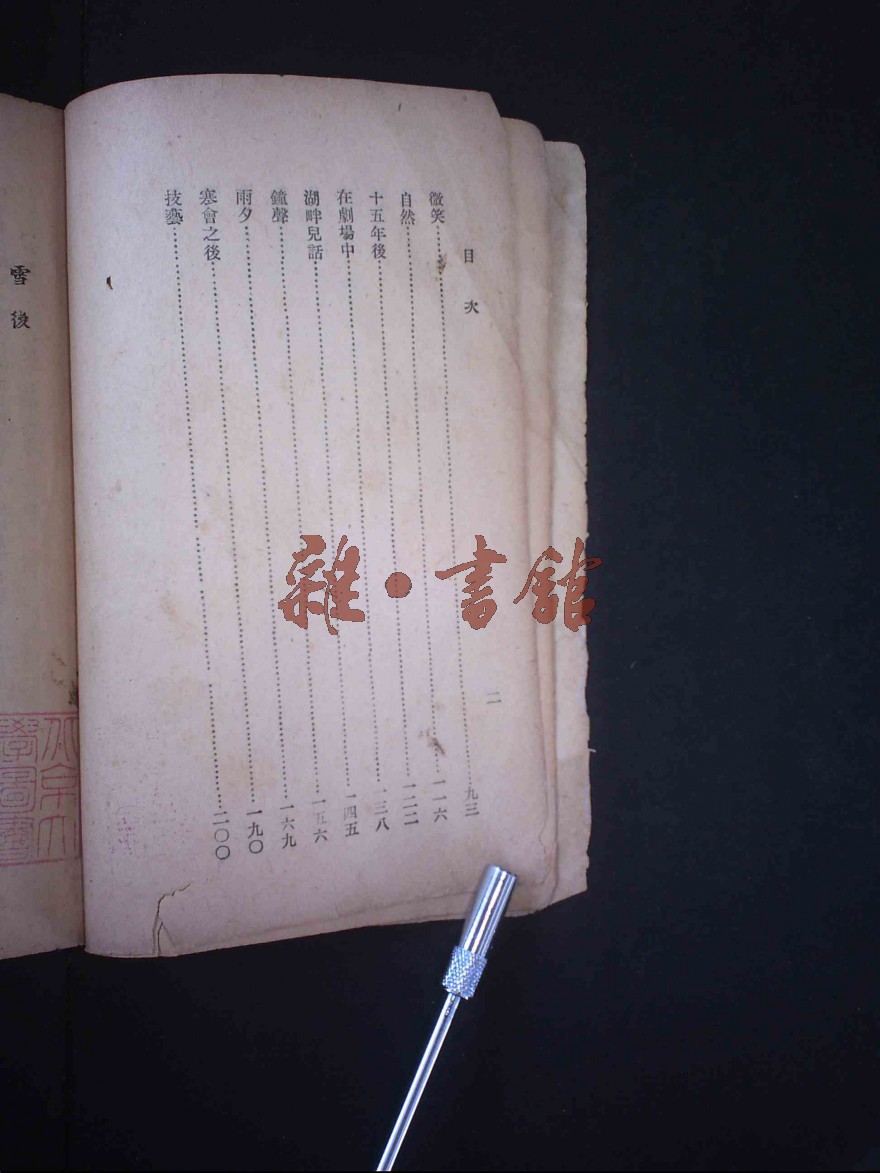 目次
二
微笑……九三
自然……一一六
十五年後……一二二
在劇場中……一三八
湖畔兒話……一四五
鐘聲……一五六
雨夕……一六九
寒會之後……一九〇
技藝……二〇〇
雪後
雜・書館